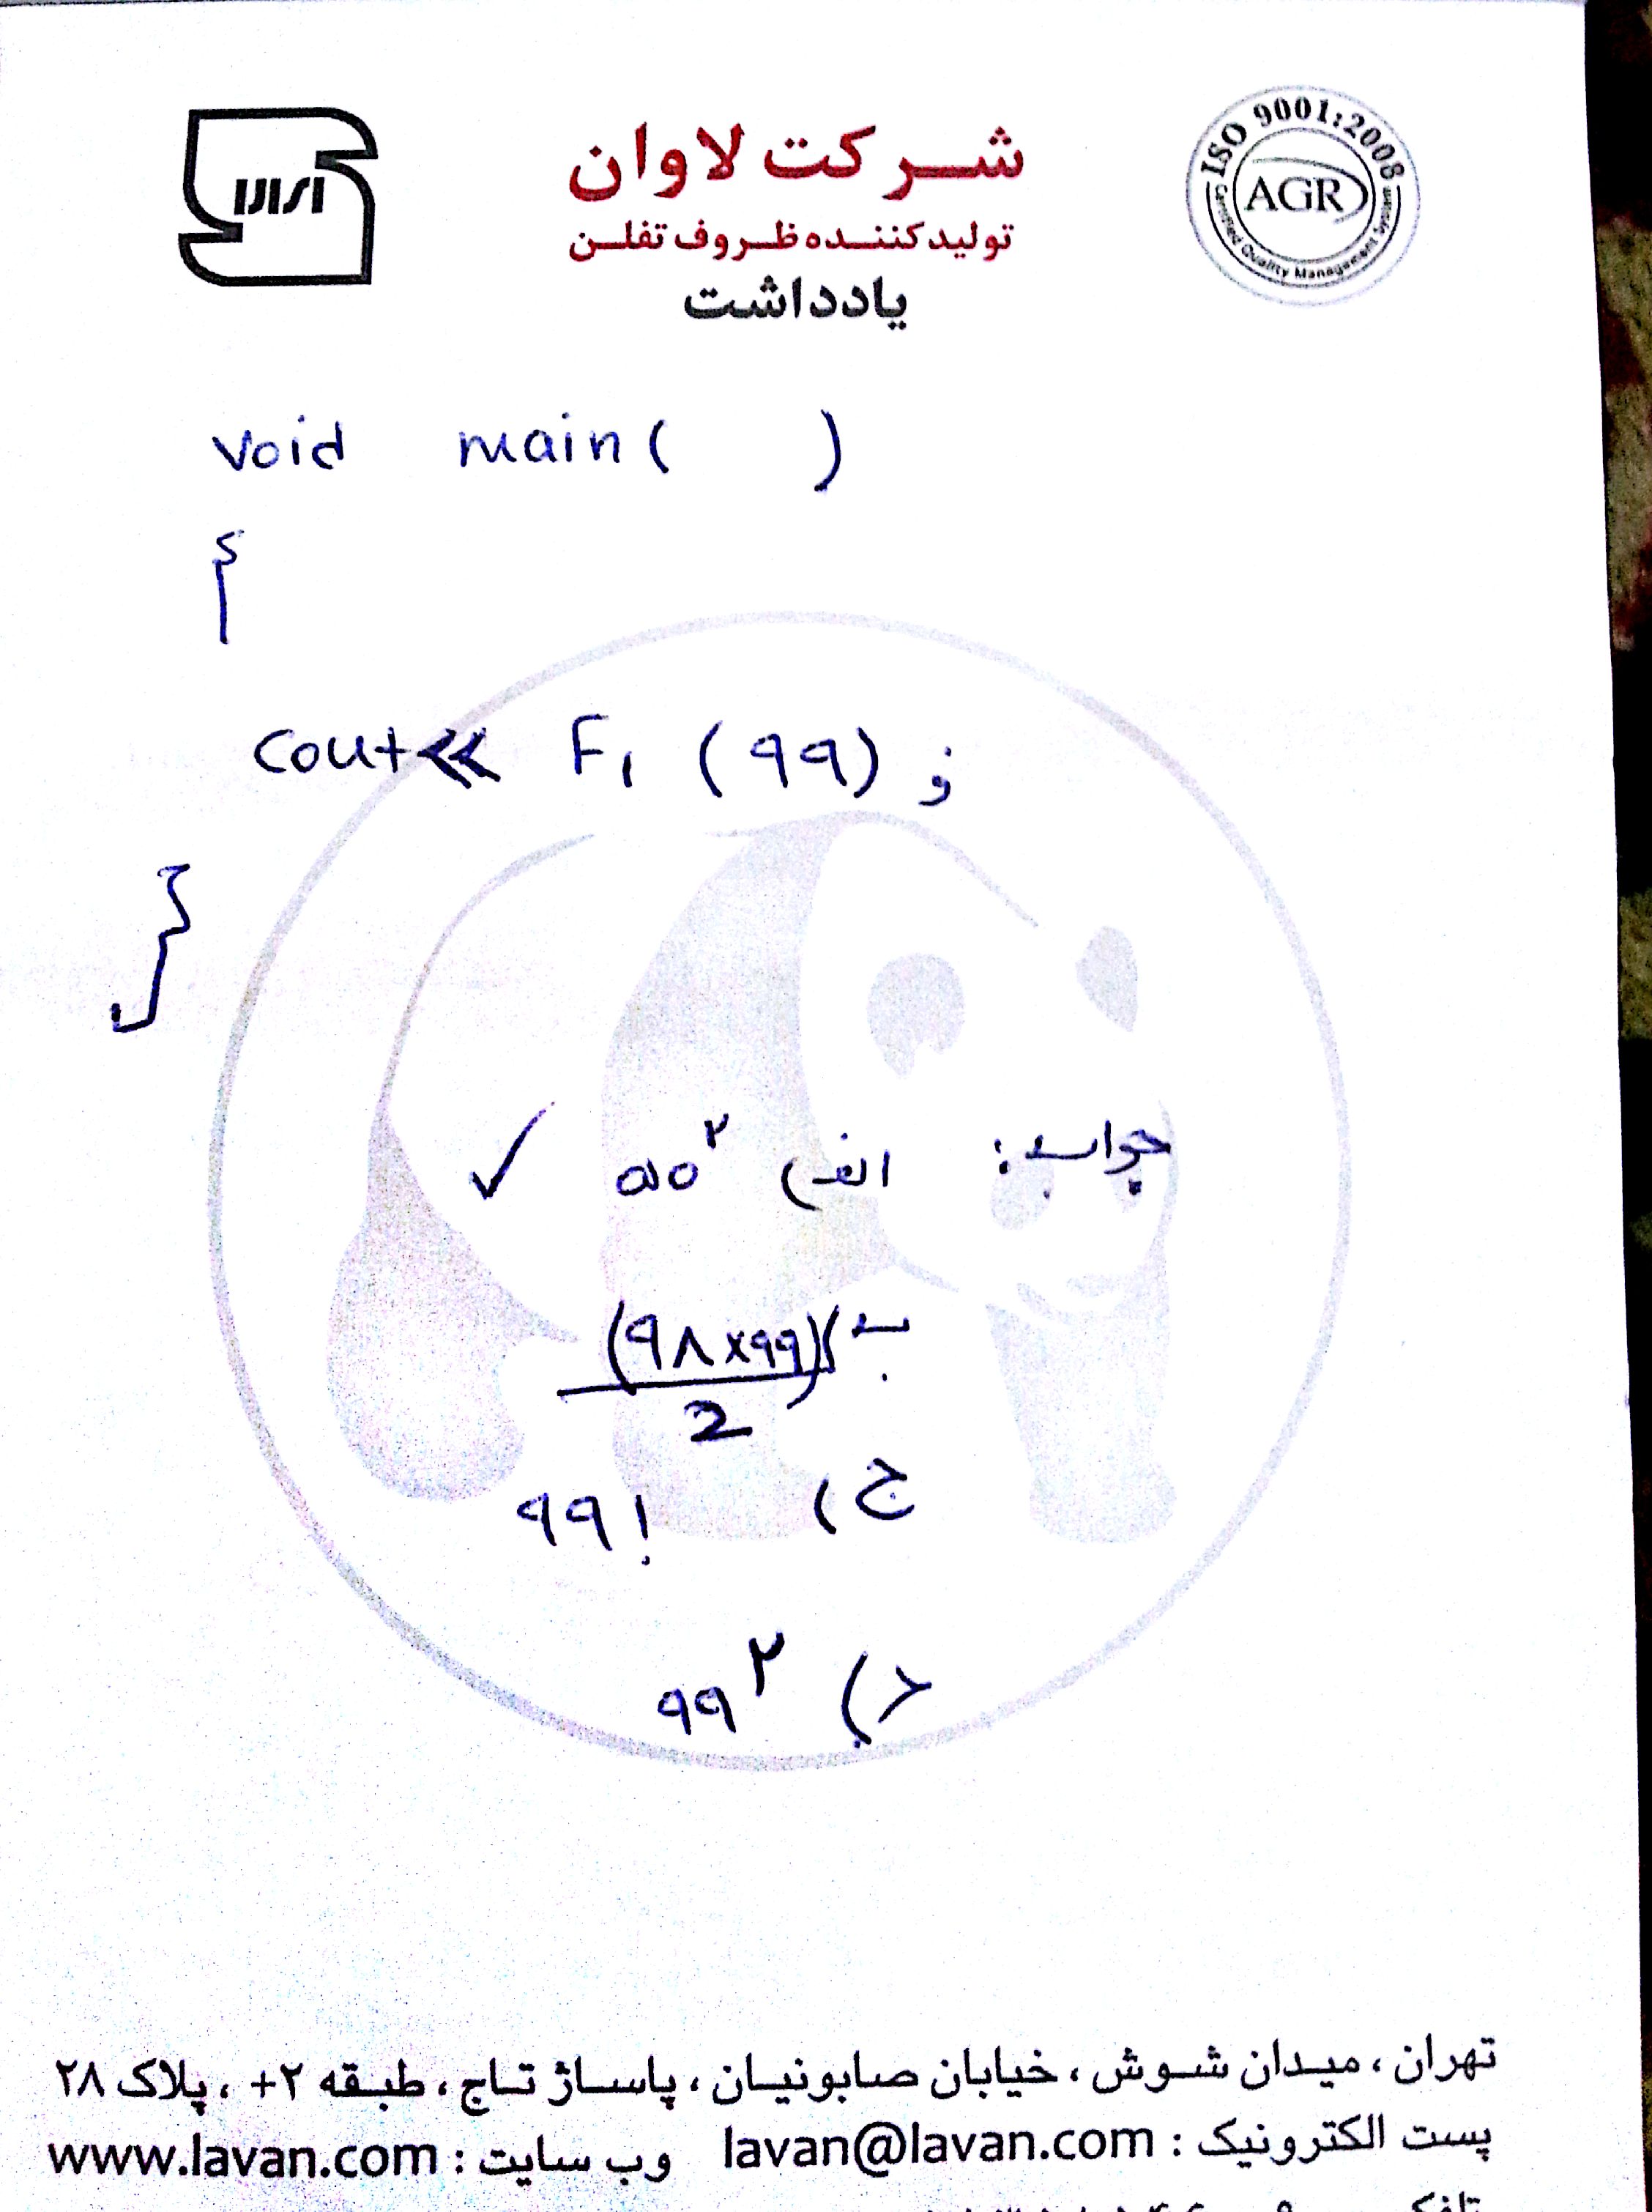 ISO 9001:2008
AGR
Certified Quality Management System
شرکت لاوان
تولید کننده ظروف تفلن
یادداشت
void main( )
{
cout<< F۱ (۹۹) ;
}
جواب: الف) ۵۰۲ ✓
ب) (۹۸×۹۹)
2
ج) ۹۹!
د) ۹۹۲
تهران، میدان شوش، خیابان صابونیان، پاساژ تاج، طبقه ۲+، پلاک ۲۸
پست الکترونیک : lavan@lavan.com وب سایت : www.lavan.com